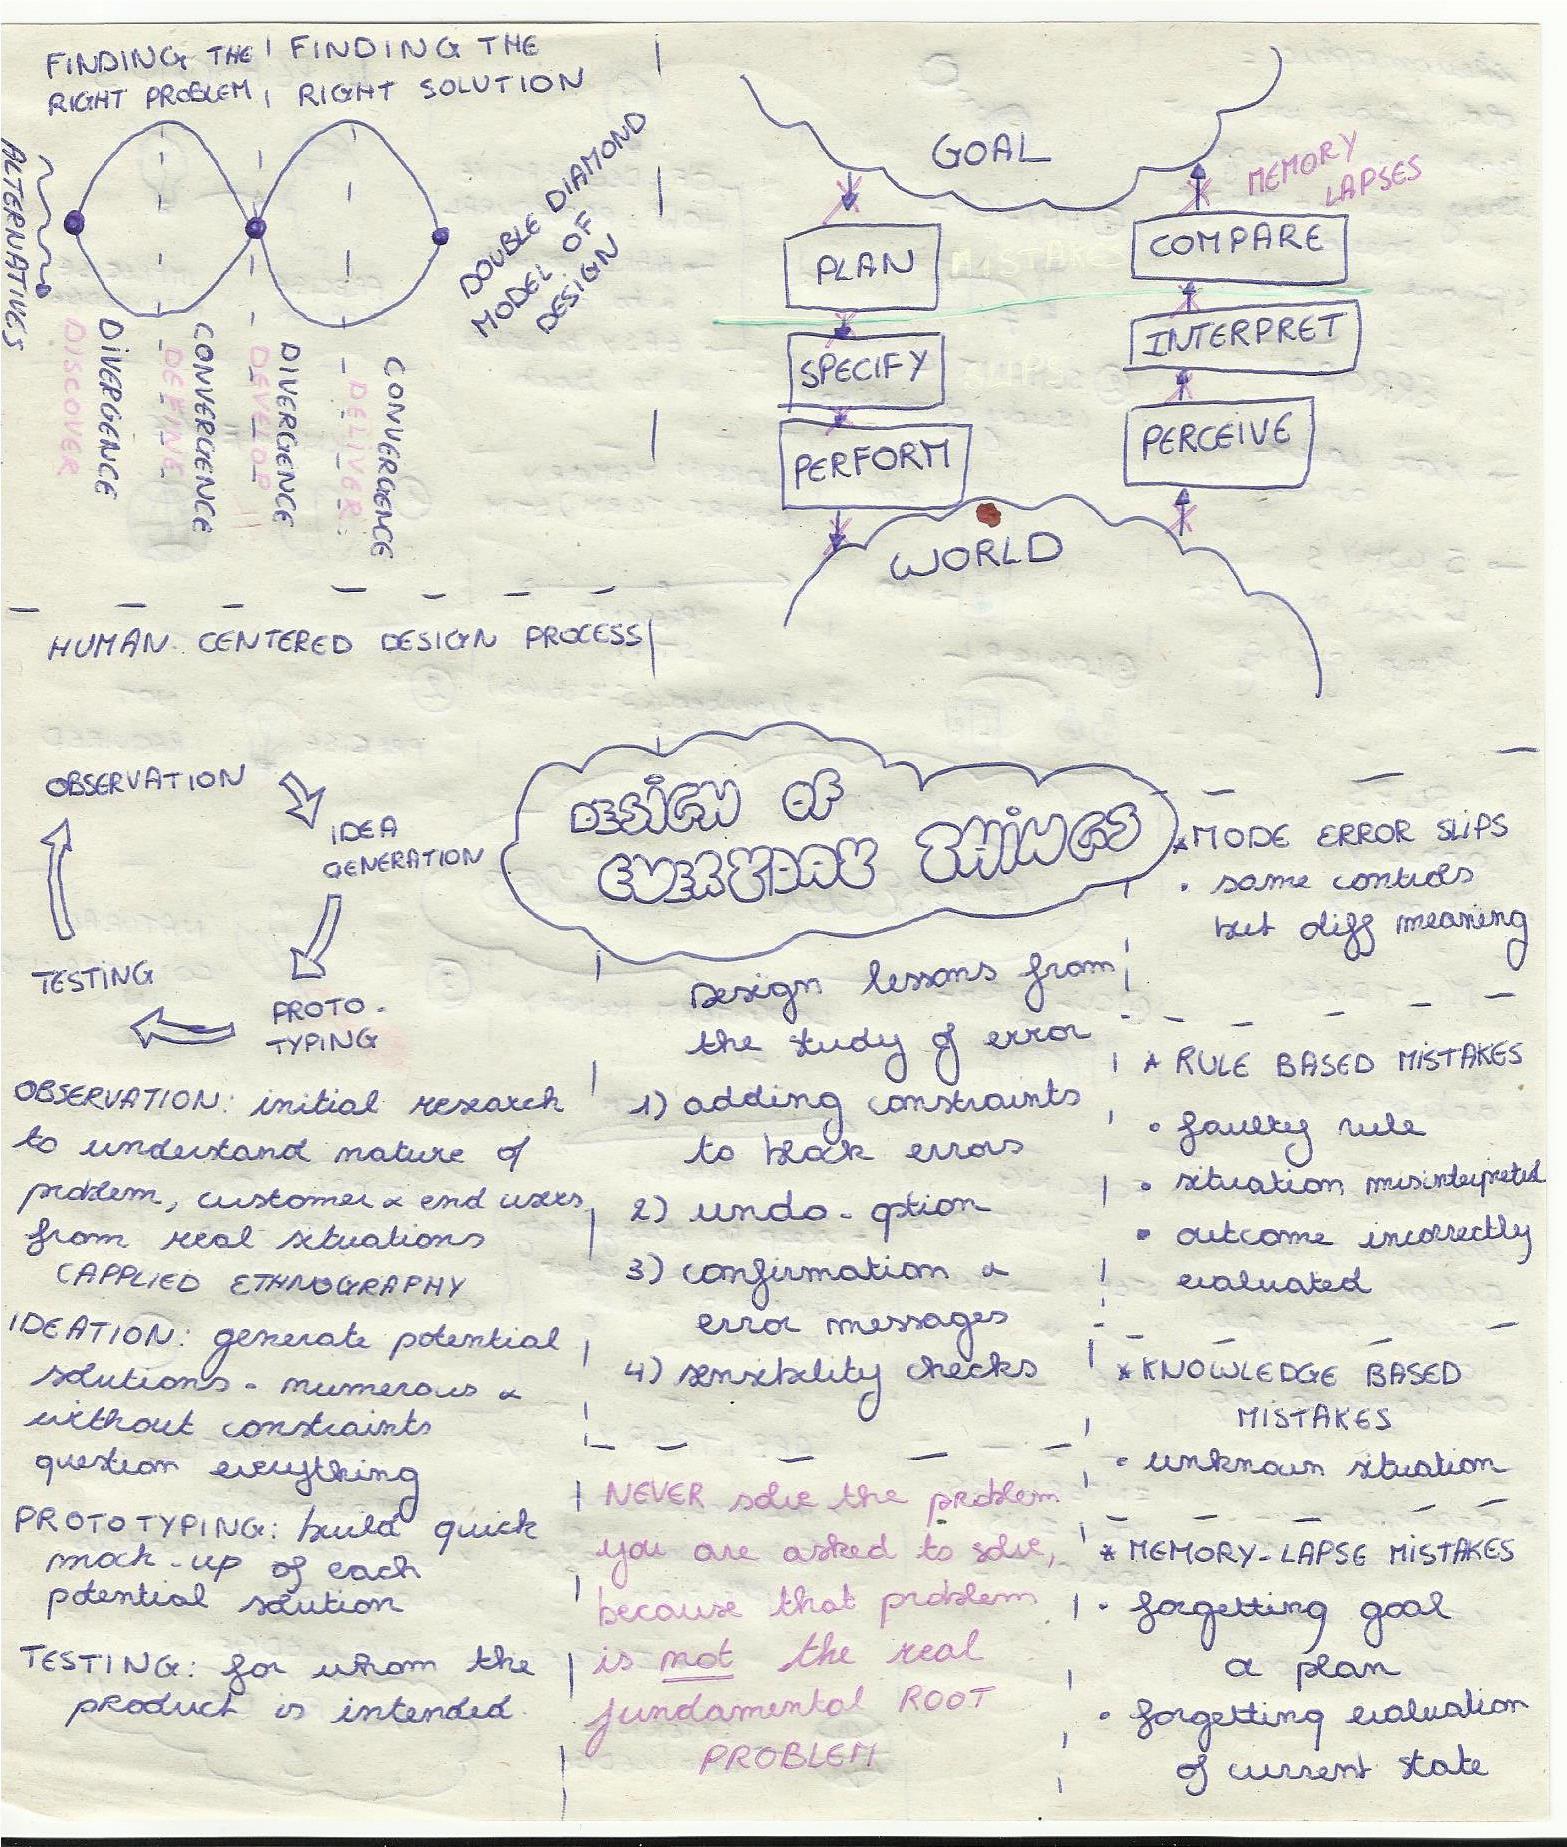 FINDING THE
RIGHT PROBLEM
FINDING THE
RIGHT SOLUTION
ALTERNATIVES
DOUBLE DIAMOND
MODEL OF
DESIGN
DISCOVER
DIVERGENCE
DEFINE
CONVERGENCE
DEVELOP
DIVERGENCE
DELIVER
CONVERGENCE
GOAL
MEMORY
LAPSES
PLAN
MISTAKES
COMPARE
SPECIFY
SLIPS
INTERPRET
PERFORM
PERCEIVE
WORLD
HUMAN-CENTERED DESIGN PROCESS
OBSERVATION
IDEA
GENERATION
PROTO-
TYPING
TESTING
OBSERVATION: initial research
to understand nature of
problem, customer & end users
from real situations
(APPLIED ETHNOGRAPHY
IDEATION: generate potential
solutions - numerous &
without constraints
question everything
PROTOTYPING: build quick
mock-up of each
potential solution
TESTING: for whom the
product is intended.
DESIGN OF
EVERYDAY THINGS
Design lessons from
the study of error
1) adding constraints
to block errors
2) undo-option
3) confirmation &
error messages
4) sensibility checks
NEVER solve the problem
you are asked to solve,
because that problem
is not the real
fundamental ROOT
PROBLEM
* MODE ERROR SLIPS
• same controls
but diff meaning
* RULE BASED MISTAKES
• faulty rule
• situation misinterpreted
• outcome incorrectly
evaluated
* KNOWLEDGE BASED
MISTAKES
• unknown situation
* MEMORY-LAPSE MISTAKES
• forgetting goal
& plan
• forgetting evaluation
of current state